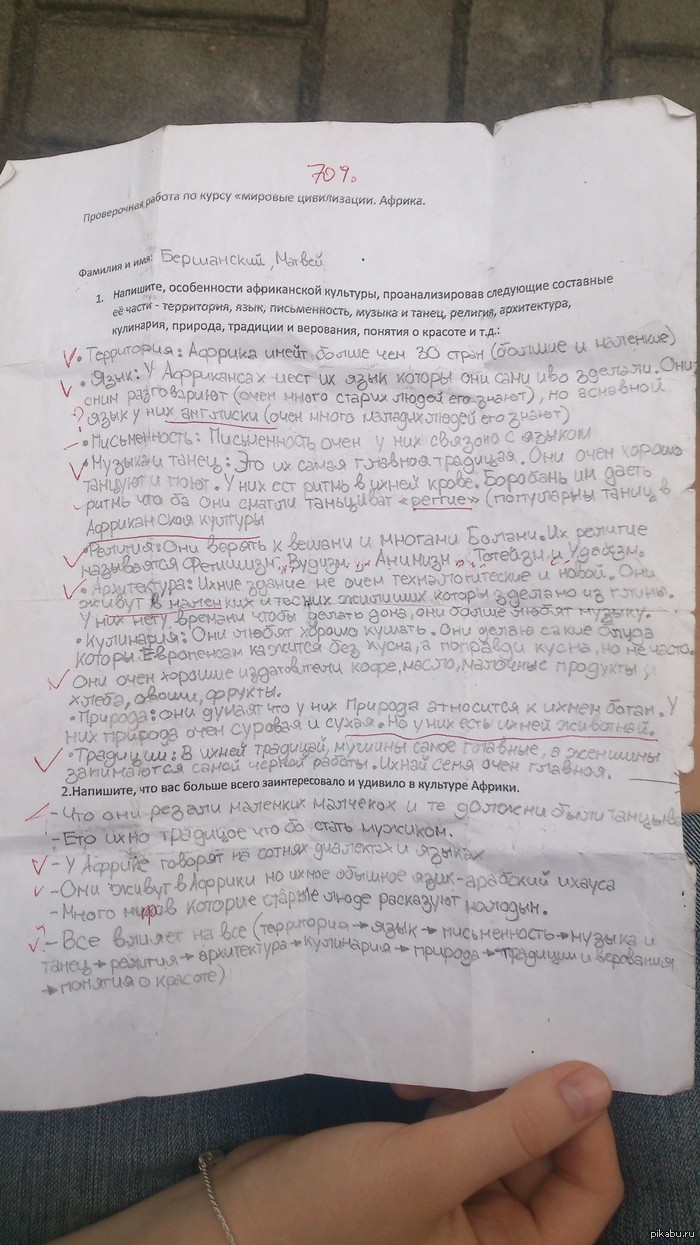 70%
Проверочная работа по курсу «мировые цивилизации. Африка.
Фамилия и имя: Бершанский, Матвей
1. Напишите, особенности африканской культуры, проанализировав следующие составные
её части - территория, язык, письменность, музыка и танец, религия, архитектура,
кулинария, природа, традиции и верования, понятия о красоте и т.д.:
• Территория: Африка имейт больше чем 30 стран (болшие и маленкие)
• Язык: У Африкансах иест их язык которы они сами иво зделали. Они
сним разговариют (очен много старих людей его знают), но аснавной
? язык у них англиски (очен много маладых людей его знают)
• Письменность: Письменность очен у них связоно с языком
• Музыка и танец: Это их самая главная традицая. Они очен хорошо
танцуют и поют. У них ест ритмь в ихней крове. Боробань им даеть
ритмь что ба они смагли таньциват «реггие» (популарны таниц в
Африканская културы
• Религия: Они верять к вешами и многами Богами. Их религие
называются Фетишизм, Вудизм, Анимизм, Тотейзм и Удаизм.
• Архитектура: Ихние здание не очем техналогические и новой. Они
живут в маленких и тесних жилиших которы зделано из глины.
У них нету времани чтобы делать дома, они болше любят музыку.
• Кулинария: Они любят хорошо кушать. Они делаю сакие блуда
которы Европенсам кажится без куска, а поправди куска, но не часто.
Они очен хорошие издатовители кофе, масло, малочные продукты,
хлеба, овоши, фрукты.
• Природа: они думаят что у них Природа атносится к ихнем богам. У
них природа очен суровая и сухая. Но у них есть ихней животнай.
• Традиции: В ихней традицай, мушины самое главные, а женшины
занимаются самой чёрной работы. Ихнай семя очен главная.
2. Напишите, что вас больше всего заинтересовало и удивило в культуре Африки.
- Что они резали маленких малчеках и те должни были танцыв
- Ето их но традицое что ба стать мужиком.
- У Африке говорят на сотнях диалектах и языках
- Они живут в Африки но их ное обышное язик - арабский и хауса
- Много мифов которие старые люде расказуют молодым.
- Все влияет на все (территория → язык → письменность → музыка и
танец → религия → архитектура → кулинария → природа → традиции и верования
→ понятия о красоте)
pikabu.ru